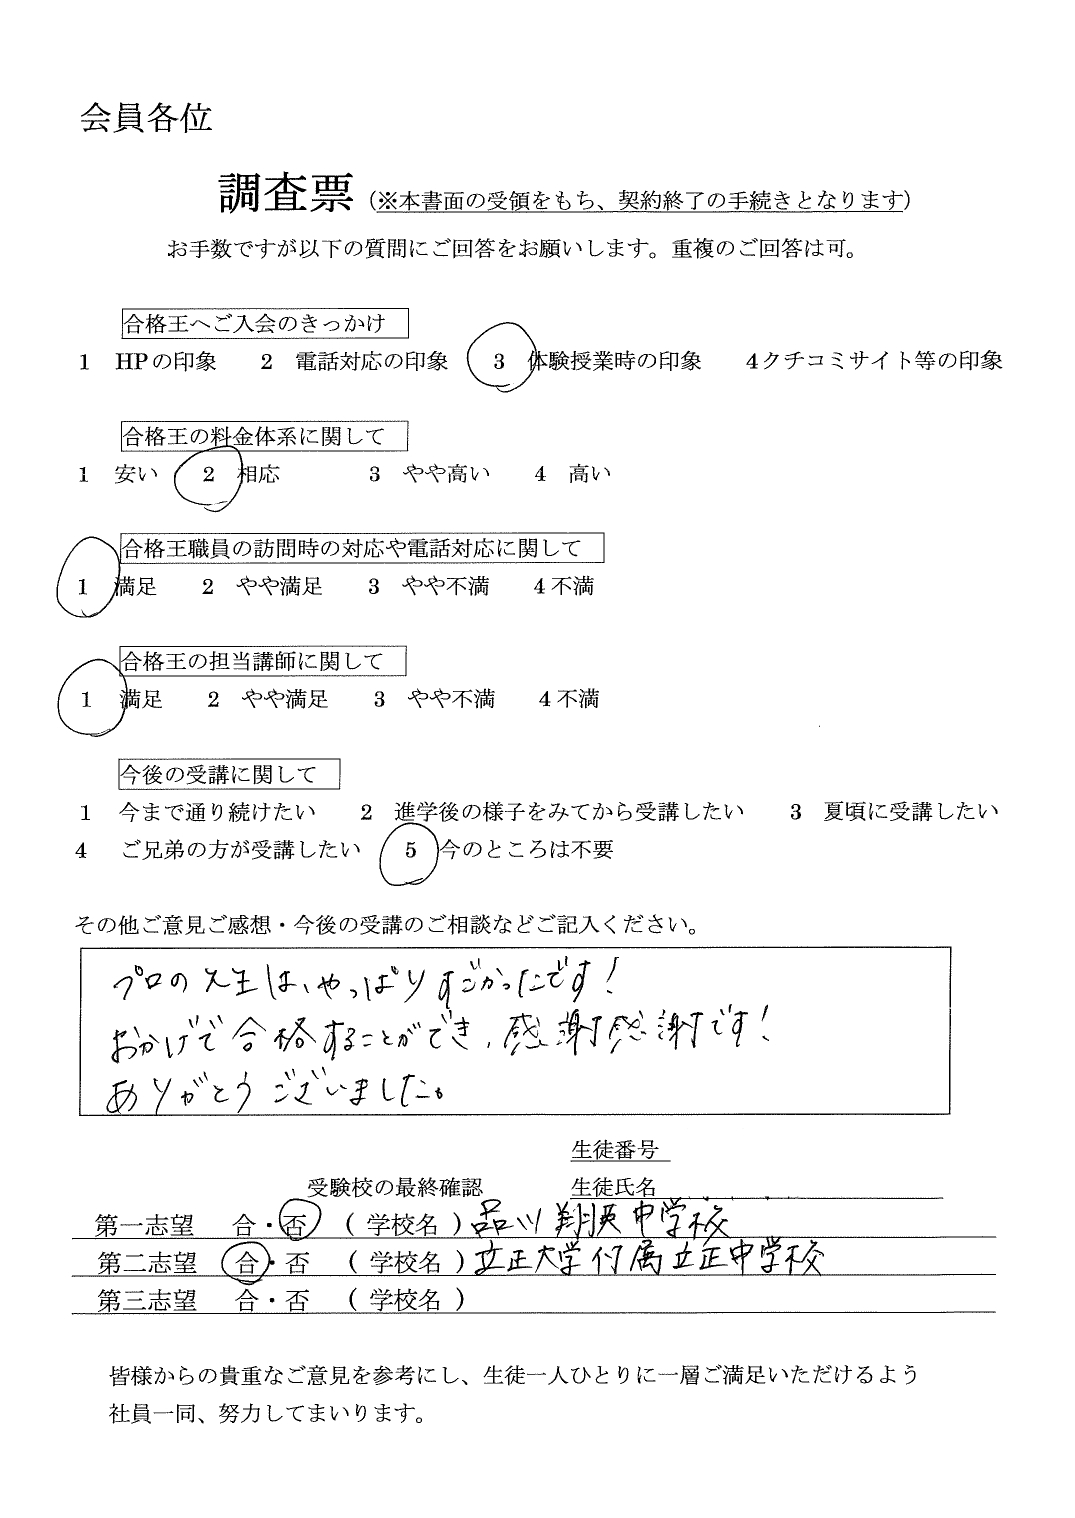 会員各位
調査票（※本書面の受領をもち、契約終了の手続きとなります）
お手数ですが以下の質問にご回答をお願いします。重複のご回答は可。
合格王へご入会のきっかけ
1 HPの印象 2 電話対応の印象 3 体験授業時の印象 4クチコミサイト等の印象
合格王の料金体系に関して
1 安い 2 相応 3 やや高い 4 高い
合格王職員の訪問時の対応や電話対応に関して
1 満足 2 やや満足 3 やや不満 4不満
合格王の担当講師に関して
1 満足 2 やや満足 3 やや不満 4不満
今後の受講に関して
1 今まで通り続けたい 2 進学後の様子をみてから受講したい 3 夏頃に受講したい
4 ご兄弟の方が受講したい 5 今のところは不要
その他ご意見ご感想・今後の受講のご相談などご記入ください。
プロの先生は、やっぱりすごかったです！
おかげで合格することができ、感謝感謝です！
ありがとうございました。
生徒番号
受験校の最終確認 生徒氏名
第一志望 合・否 （学校名）品川翔英中学校
第二志望 合・否 （学校名）立正大学付属立正中学校
第三志望 合・否 （学校名）
皆様からの貴重なご意見を参考にし、生徒一人ひとりに一層ご満足いただけるよう
社員一同、努力してまいります。